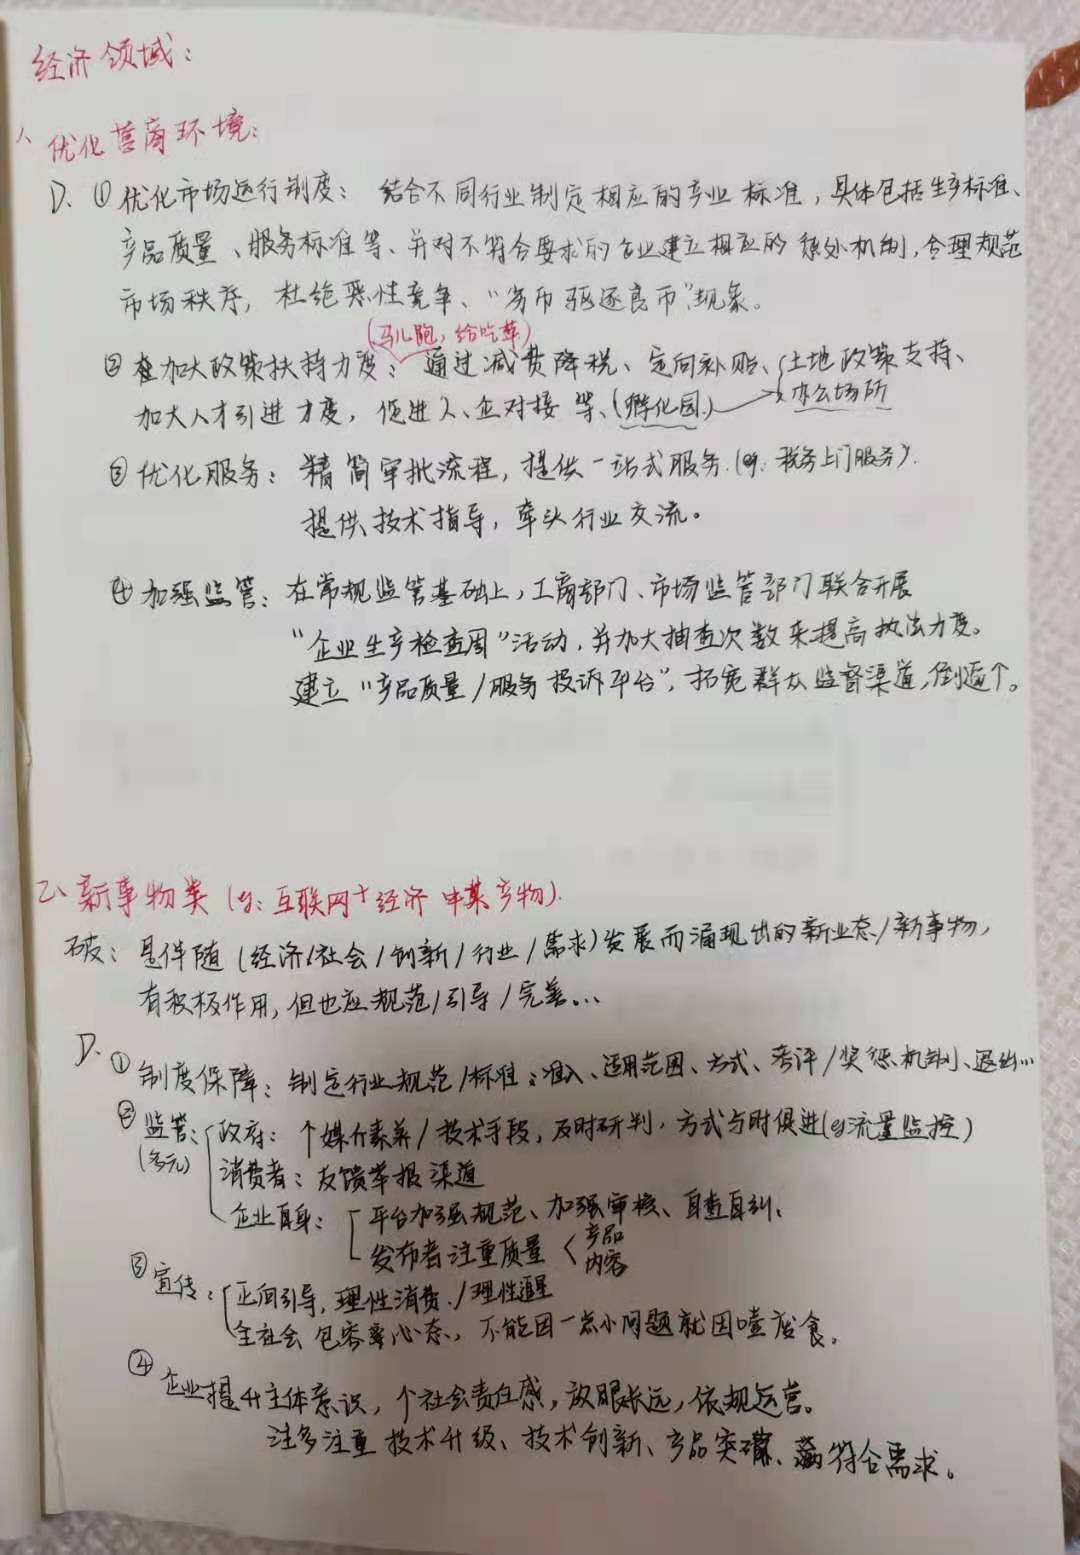 经济领域：
1、优化营商环境：
D、①优化市场运行制度：结合不同行业制定相应的产业标准，具体包括生产标准、
产品质量、服务标准等、并对不符合要求的企业建立相应的惩处机制，合理规范
市场秩序，杜绝恶性竞争、“劣币驱逐良币”现象。
（马儿跑，给吃草）
②加大政策扶持力度：通过减费降税、定向补贴、土地政策支持、
加大人才引进力度，促进人、企对接等、（孵化园）→办公场所
③优化服务：精简审批流程，提供一站式服务.（eg：税务上门服务）.
提供技术指导，牵头行业交流。
④加强监管：在常规监管基础上，工商部门、市场监管部门联合开展
“企业生产检查周”活动，并加大抽查次数来提高执法力度。
建立“产品质量/服务投诉平台”，拓宽群众监督渠道，倒逼个。
2、新事物类（eg：互联网+经济中某产物）.
破：是伴随（经济/社会/创新/行业/需求）发展而涌现出的新业态/新事物，
有积极作用，但也应规范/引导/完善...
D、①制度保障：制定行业规范/标准：准入、适用范围、方式、考评/奖惩机制、退出...
②监管：政府：个媒介素养/技术手段，及时研判，方式与时俱进（eg流量监控）
（多元）消费者：反馈举报渠道
企业自身：平台加强规范、加强审核、自查自纠、
发布者注重质量〈产品
内容
③宣传：正向引导，理性消费./理性追星
全社会包容心态、不能因一点小问题就因噎废食。
④企业提升主体意识，个社会责任感，放眼长远，依规运营。
注重技术升级、技术创新、产品突破、符合需求。